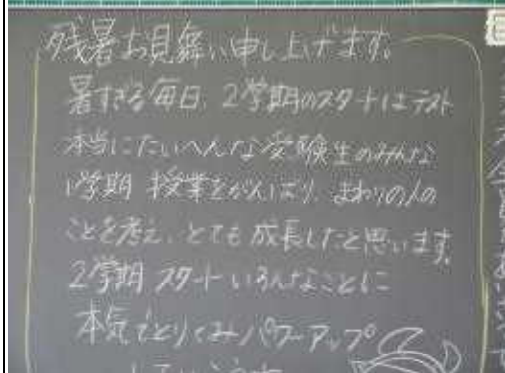 残暑お見舞い申し上げます。
暑すぎる毎日、2学期のスタートはテスト
本当にたいへんな受験生のみんな
1学期 授業をがんばり、まわりの人の
ことを考え、とても成長したと思います。
2学期 スタート いろんなことに
本気でとりくみパワーアップ